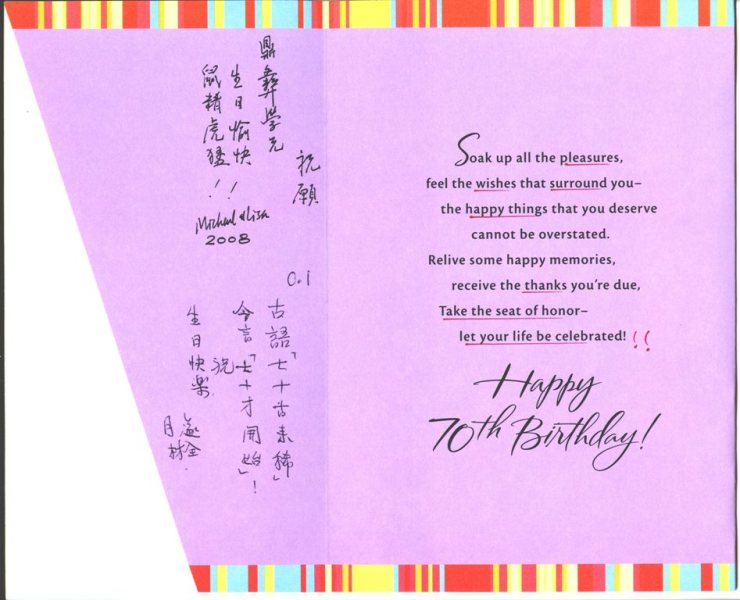 鼎彝學兄
祝願
生日愉快
鼠精虎猛!!
Michael & Lisa
2008
古語「七十古來稀」
今言「七十才開始」!
祝
生日快樂
Soak up all the pleasures,
feel the wishes that surround you–
the happy things that you deserve
cannot be overstated.
Relive some happy memories,
receive the thanks you're due,
Take the seat of honor–
let your life be celebrated! !!
Happy
70th Birthday!